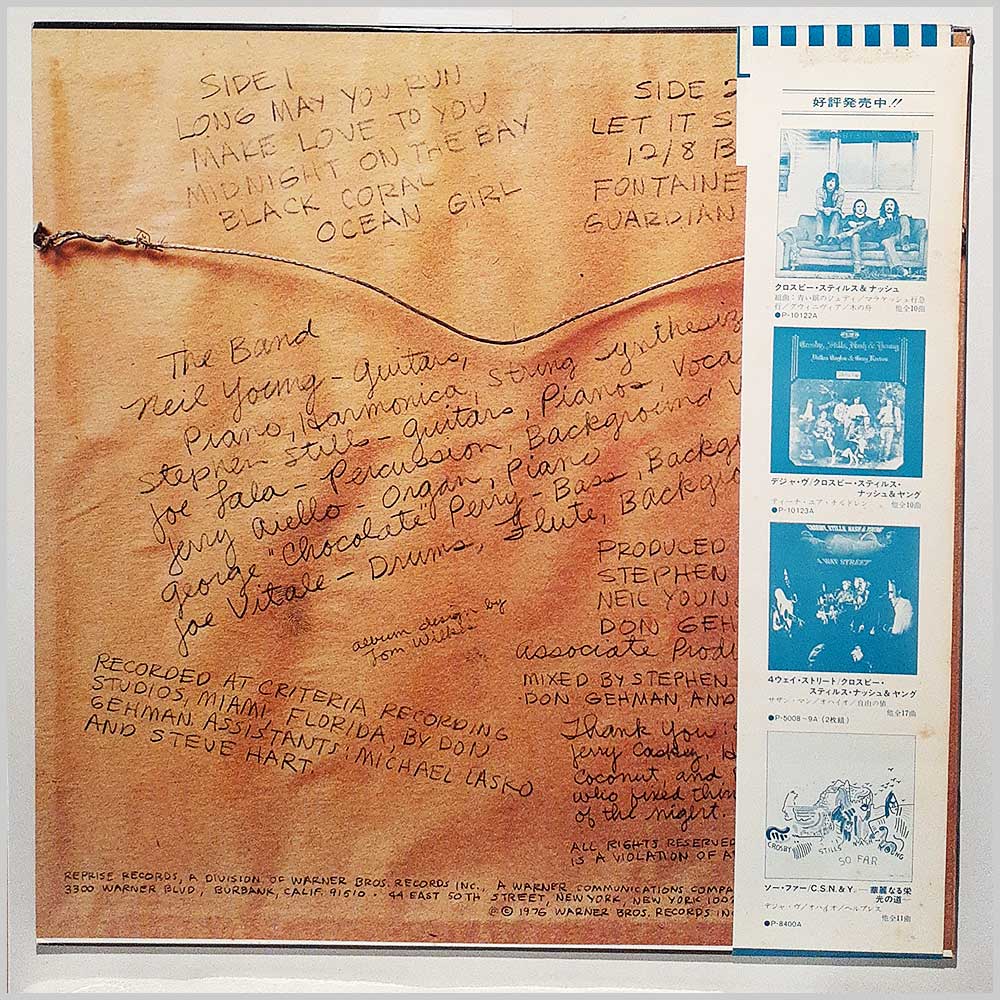 SIDE 1
LONG MAY YOU RUN
MAKE LOVE TO YOU
MIDNIGHT ON THE BAY
BLACK CORAL
OCEAN GIRL
SIDE 2
LET IT S
12/8 B
FONTAINE
GUARDIAN
The Band
Neil Young - Guitars,
Piano, Harmonica, String Synthesiz
Stephen Stills - Guitars, Pianos, Voca
Joe Lala - Percussion, Background V
Jerry Aiello - Organ, Piano
George "Chocolate" Perry - Bass, Backg
Joe Vitale - Drums, Flute, Backgro
album design by
Tom Wilkes
RECORDED AT CRITERIA RECORDING
STUDIOS, MIAMI, FLORIDA, BY DON
GEHMAN. ASSISTANTS: MICHAEL LASKO
AND STEVE HART
PRODUCED
STEPHEN
NEIL YOUN
DON GEH
Associate Produ
MIXED BY STEPHEN
DON GEHMAN AND
Thank You
Jerry Caskey,
Coconut, and
who fixed thin
of the night.
ALL RIGHTS RESERVED
IS A VIOLATION OF A
REPRISE RECORDS, A DIVISION OF WARNER BROS. RECORDS INC., A WARNER COMMUNICATIONS COMPA
3300 WARNER BLVD., BURBANK, CALIF. 91510 · 44 EAST 50TH STREET, NEW YORK, NEW YORK 1002
℗ © 1976 WARNER BROS. RECORDS INC
好評発売中!!
クロスビー・スティルス&ナッシュ
組曲:青い眼のジュディ/マラケッシュ行急
行/グウィニヴィア/木の舟 他全10曲
●P-10122A
Crosby, Stills, Nash & Young
Dallas Taylor & Greg Reeves
デジャ・ヴ/クロスビー・スティルス・
ナッシュ&ヤング
ティーチ・ユア・チルドレン 他全10曲
●P-10123A
CROSBY, STILLS, NASH & YOUNG
4 WAY STREET
4ウェイ・ストリート/クロスビー・
スティルス・ナッシュ&ヤング
サザン・マン/オハイオ/自由の値 他全17曲
●P-5008~9A (2枚組)
CROSBY STILLS NASH YOUNG
SO FAR
ソー・ファー/C.S.N.&Y.—華麗なる栄
光の道—
デジャ・ヴ/オハイオ/ヘルプレス
他全11曲
●P-8400A